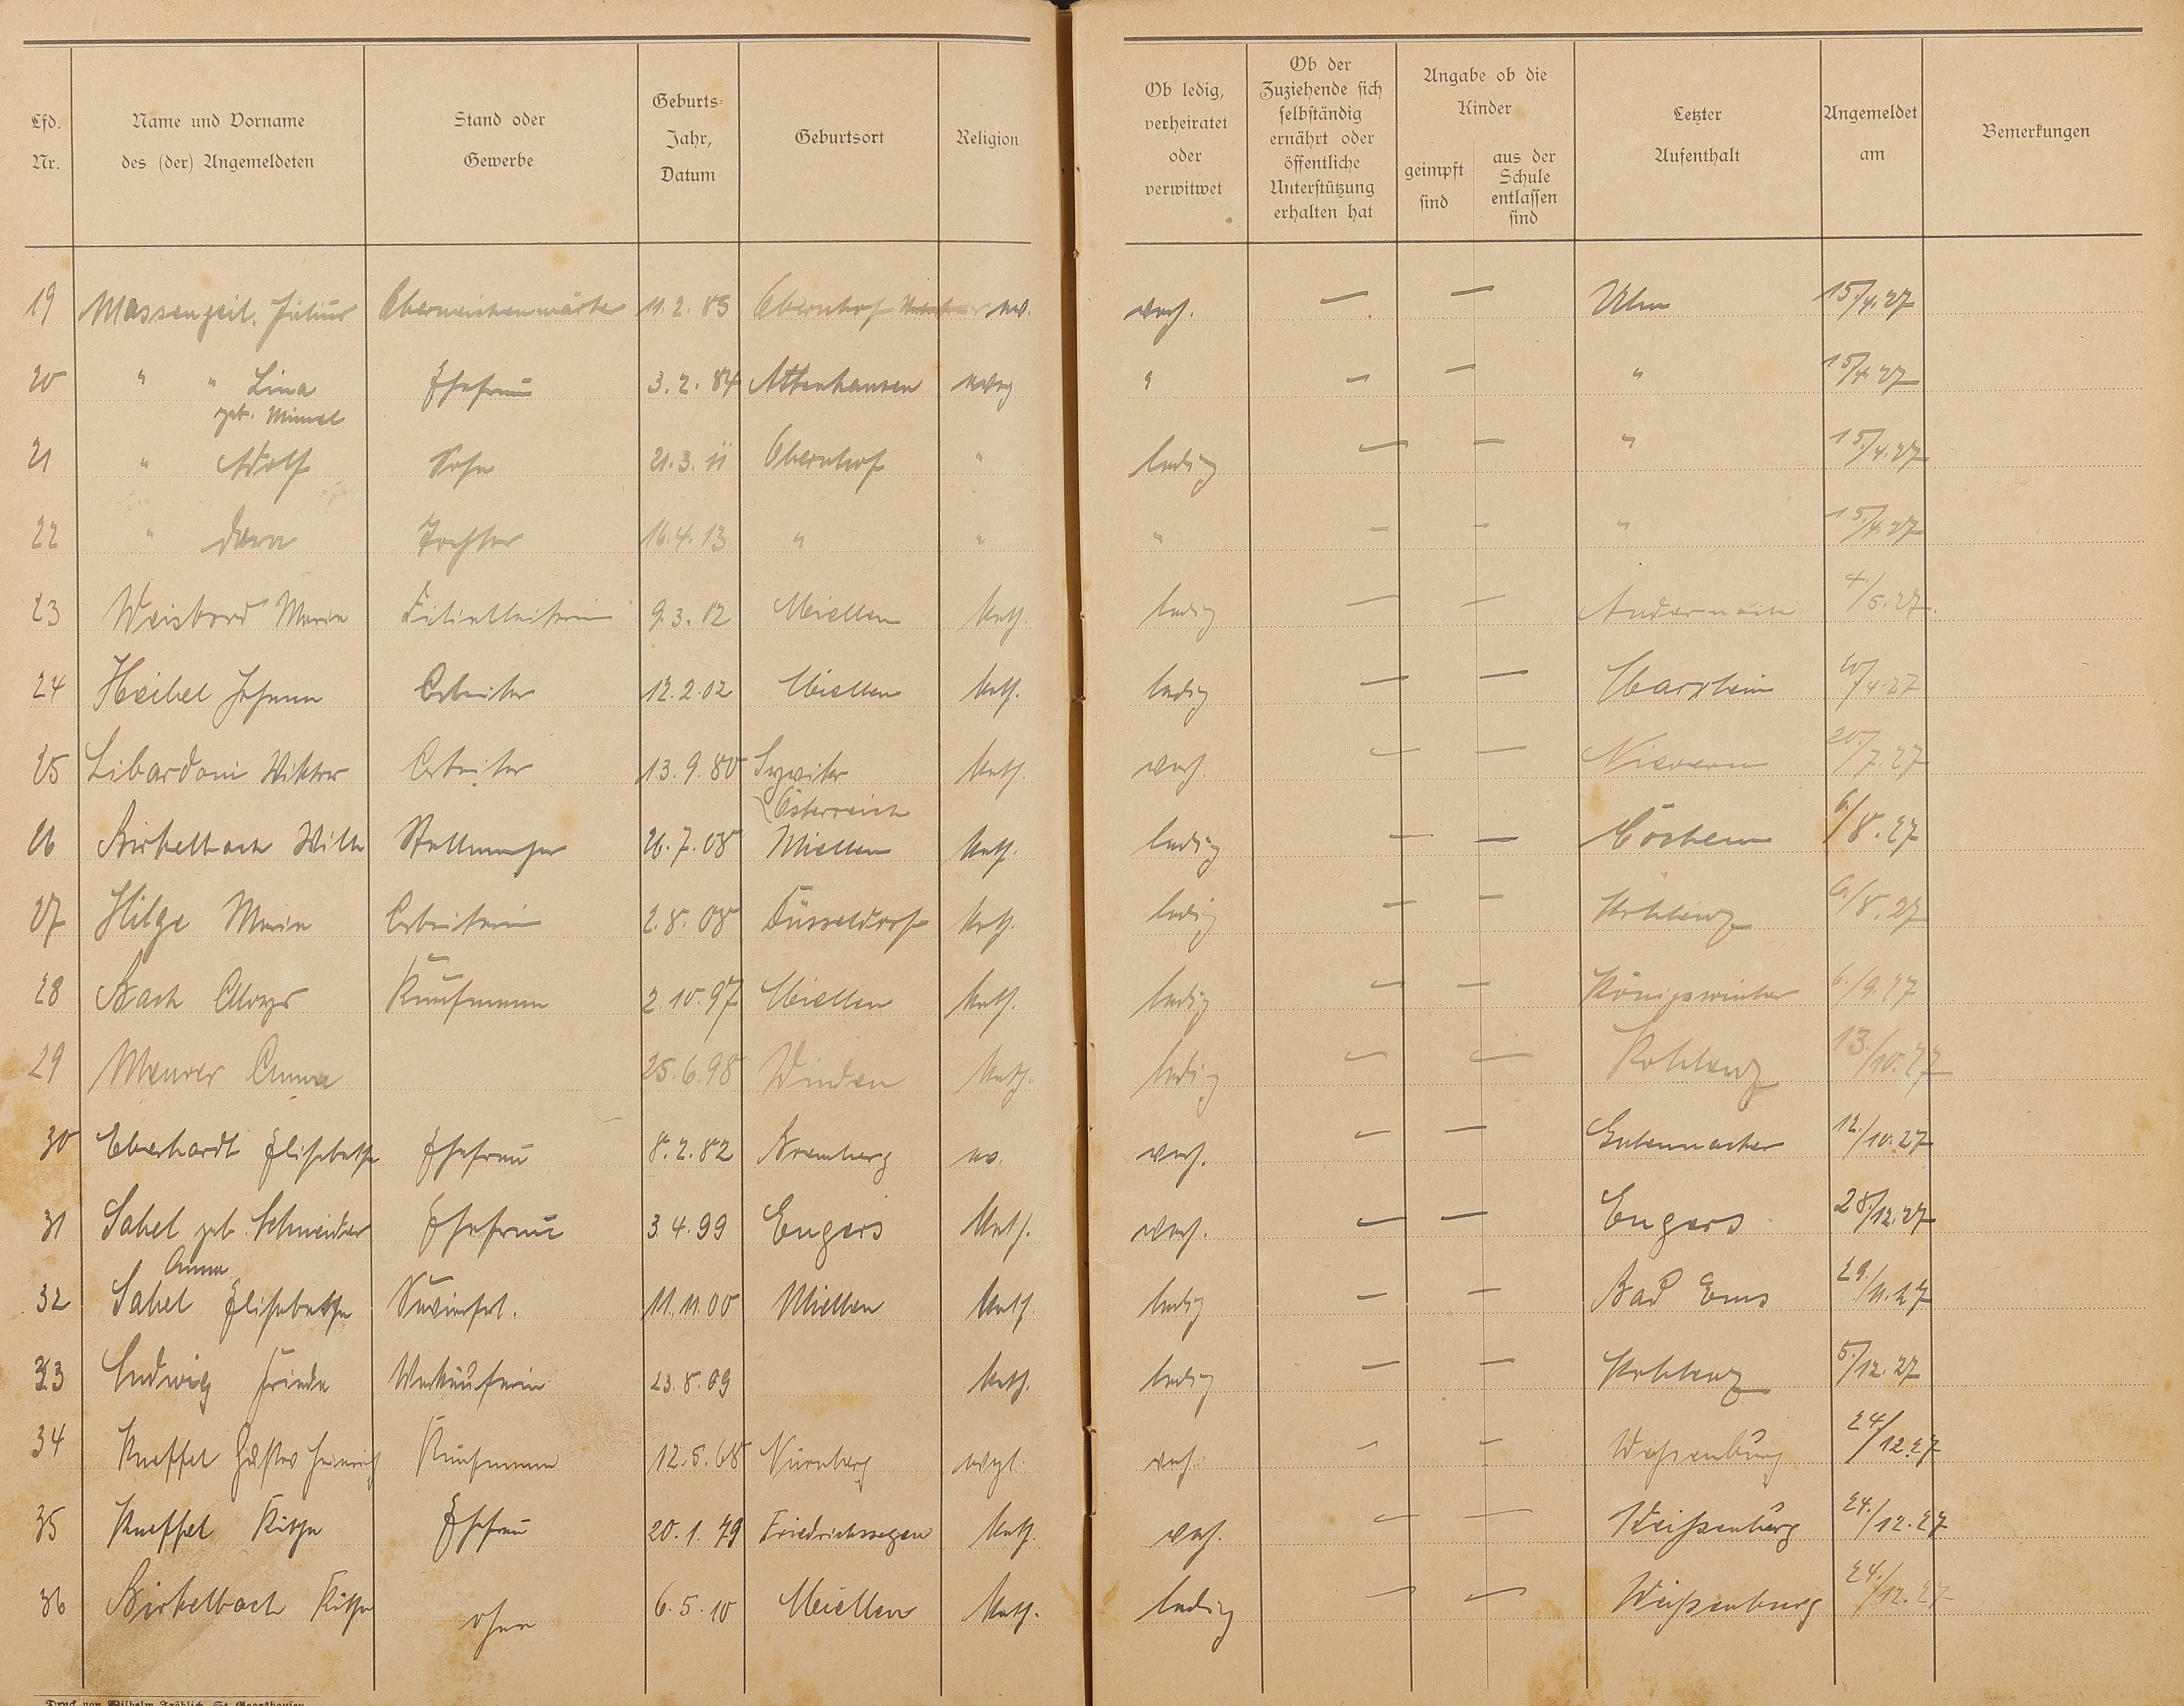 Lfd. Nr. | Name und Vorname des (der) Angemeldeten | Stand oder Gewerbe | Geburts-Jahr, Datum | Geburtsort | Religion | Ob ledig, verheiratet oder verwitwet | Ob der Zuziehende sich selbständig ernährt oder öffentliche Unterstützung erhalten hat | Angabe ob die Kinder geimpft sind | aus der Schule entlassen sind | Letzter Aufenthalt | Angemeldet am | Bemerkungen
19 Massengeil, Julius Oberweichenwärter 11.2.85 Obernhof ev. verh. — — Ulm 15/4.27
20 " " Lina Ehefrau 3.2.84 Attenhausen evg " — — " 15/4.27
geb.
21 " Adolf Sohn 21.3.11 Obernhof " ledig — — " 15/4.27
22 " Tochter 16.4.13 " " " — — " 15/4.27
23 Maria Filialleiterin 9.3.02 Miellen kath. ledig — — Andernach 4./5.27.
24 Heibel Johann Arbeiter 12.2.02 Miellen kath. ledig — — 4.27
25 Libardoni Viktor Arbeiter 13.9.80 kath. verh. — — Nievern 20/7.27
Österreich
26 Birkelbach Willi 26.7.08 Miellen kath. ledig — — 6./8.27
27 Hilge Maria Arbeiterin 2.8.08 Düsseldorf kath. ledig — — Koblenz 6./8.27
28 Bach Aloys Kaufmann 2.10.97 Miellen kath. ledig — — Königswinter 6./9.27
29 Meurer Anna 25.6.98 Winden kath. ledig — — Koblenz 13./10.27
30 Eberhardt Elisabetha Ehefrau 8.2.82 Bremberg ev. verh. — — Gutenacker 12./10.27
31 Sabel geb. Schneider Ehefrau 3.4.99 Engers kath. verh. — — Engers 28./12.27
Anna
32 Sabel Elisabetha 11.11.00 Miellen kath. ledig — — Bad Ems 29./11.27
33 Ludwig Frieda Verkäuferin 23.8.09 kath. ledig — — Koblenz 5./12.27
34 Kneffel Gustav Heinrich Kaufmann 12.5.68 Nürnberg evgl. verh. — — Weißenburg 24/12.27
35 Kneffel Käthe Ehefrau 20.1.79 Friedrichssegen kath. verh. — — Weißenburg 24./12.27
36 Birkelbach Käthe ohne 6.5.10 Miellen kath. ledig — — Weißenburg 24./12.27
Druck von Wilhelm Fröhlich, St. Goarshausen